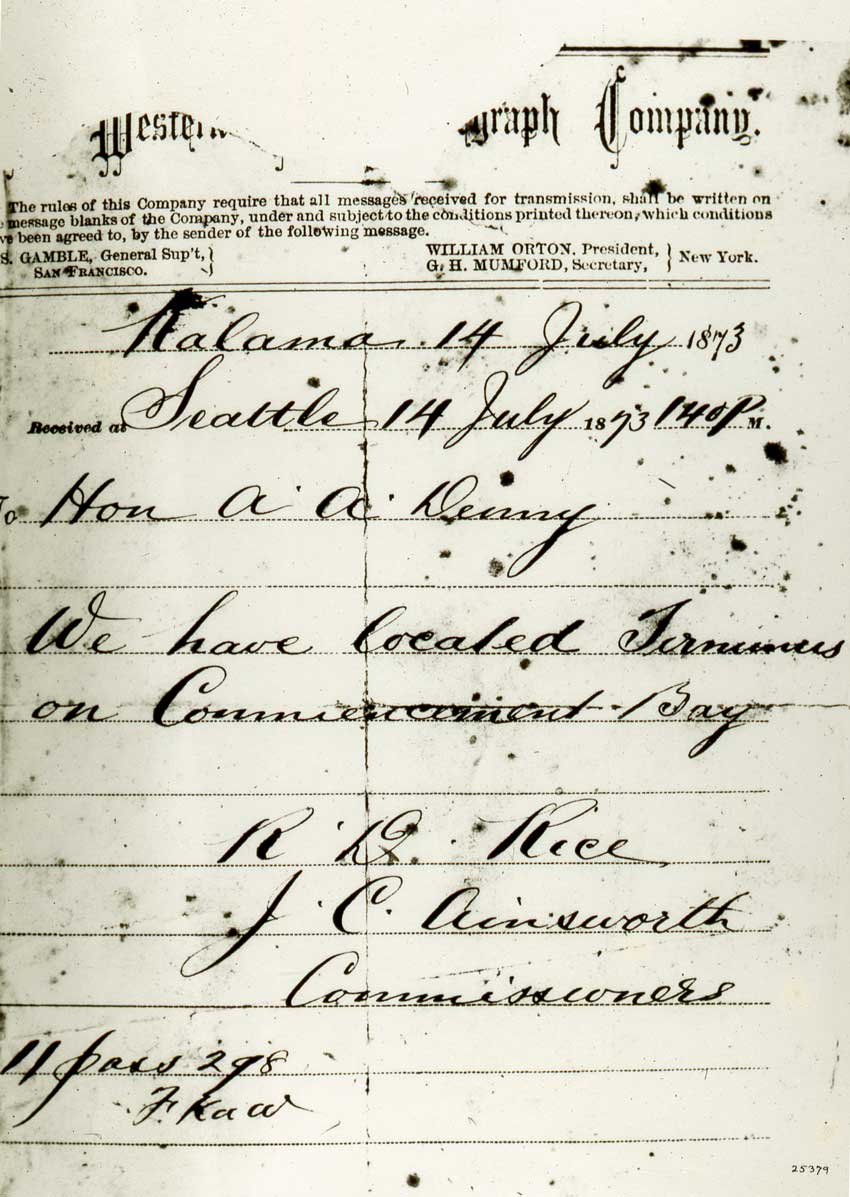 Western graph Company.
The rules of this Company require that all messages received for transmission, shall be written on
message blanks of the Company, under and subject to the conditions printed thereon, which conditions
been agreed to, by the sender of the following message.
S. GAMBLE, General Sup't, WILLIAM ORTON, President,
SAN FRANCISCO. G. H. MUMFORD, Secretary, New York.
Kalama 14 July 1873
Received at Seattle 14 July 1873 140 P M.
To Hon A A Denny
We have located Terminus
on Commencement Bay
R D. Rice
J. C. Ainsworth
Commissioners
11 pass 298
25379